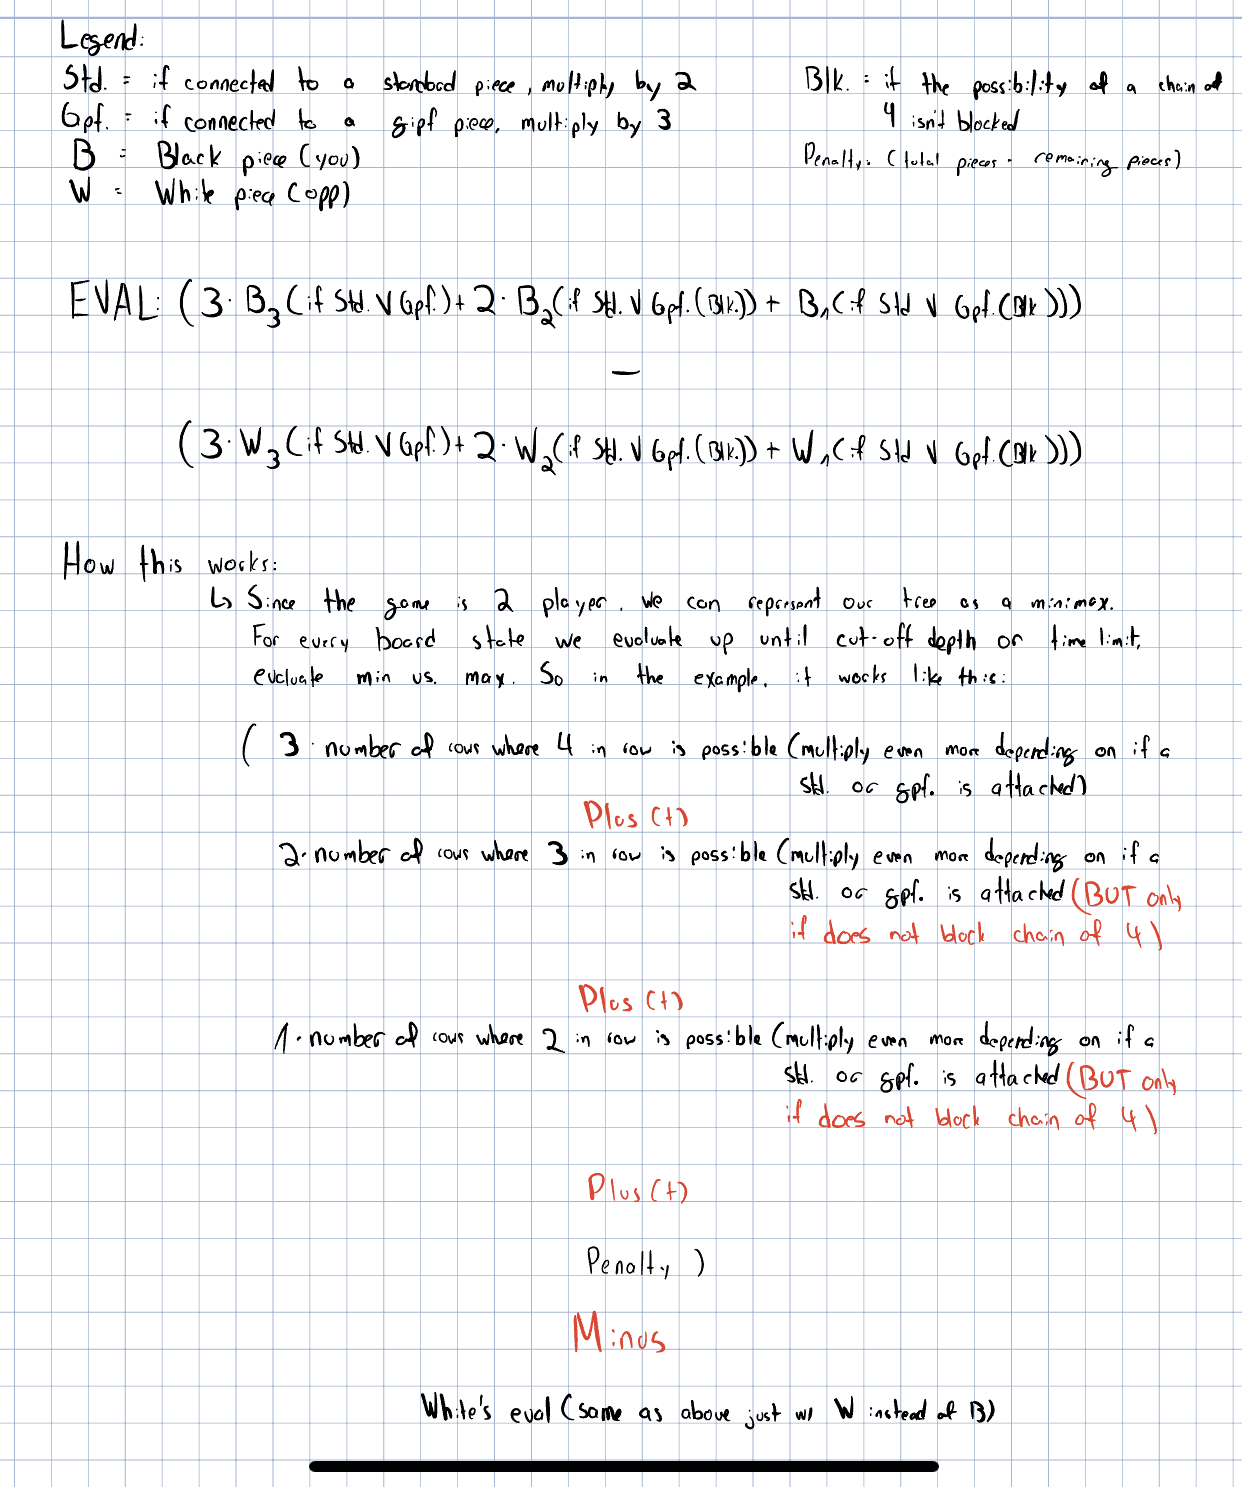 Legend:
Std. = if connected to a standard piece, multiply by 2
Gpf. = if connected to a gipf piece, multiply by 3
B = Black piece (you)
W = White piece (opp)
Blk. = if the possibility of a chain of
4 isn't blocked
Penalty: (total pieces - remaining pieces)
EVAL: (3 · B₃ (if Std. V Gpf.) + 2 · B₂ (if Std. V Gpf. (Blk.)) + B₁ (if Std V Gpf. (Blk)))
—
(3 · W₃ (if Std. V Gpf.) + 2 · W₂ (if Std. V Gpf. (Blk.)) + W₁ (if Std V Gpf. (Blk)))
How this works:
↳ Since the game is 2 player, we can represent our tree as a minimax.
For every board state we evaluate up until cut-off depth or time limit,
evaluate min vs. max. So in the example, it works like this:
( 3 · number of rows where 4 in row is possible (multiply even more depending on if a
std. or gpf. is attached)
Plus (+)
2 · number of rows where 3 in row is possible (multiply even more depending on if a
std. or gpf. is attached (BUT only
if does not block chain of 4)
Plus (+)
1 · number of rows where 2 in row is possible (multiply even more depending on if a
std. or gpf. is attached (BUT only
if does not block chain of 4)
Plus (+)
Penalty )
Minus
White's eval (same as above just w/ W instead of B)